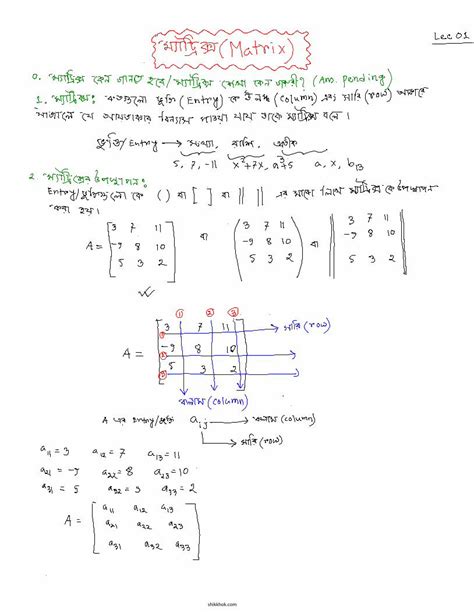 Lec 01
ম্যাট্রিক্স (Matrix)
0. ম্যাট্রিক্স কেন জানতে হবে/ম্যাট্রিক্স শেখা কেন জরুরী? (Ans. pending)
1. ম্যাট্রিক্স: কতগুলো ভুক্তি (Entry) কে কলাম (column) এবং সারি (row) আকারে
সাজালে যে আয়তাকার বিন্যাস পাওয়া যায় তাকে ম্যাট্রিক্স বলে।
ভুক্তি/Entry → সংখ্যা, রাশি, প্রতীক
5, 7, -11 x²+7x, a³+5 a, x, b₁₃
2. ম্যাট্রিক্সের উপস্থাপন:
Entry/ভুক্তিগুলো কে ( ) বা [ ] বা || || এর মাঝে লিখে ম্যাট্রিক্স কে উপস্থাপন
করা হয়।
A = [3 7 11 বা (3 7 11 বা ||3 7 11
-9 8 10 -9 8 10 -9 8 10
5 3 2] 5 3 2) 5 3 2||
① ② ③
A = [3 7 11 → সারি (row)
① -9 8 10
② 5 3 2]
③
কলাম (column)
A এর Entry/ভুক্তি a_ij → কলাম (column)
→ সারি (row)
a₁₁ = 3 a₁₂ = 7 a₁₃ = 11
a₂₁ = -9 a₂₂ = 8 a₂₃ = 10
a₃₁ = 5 a₃₂ = 3 a₃₃ = 2
A = [a₁₁ a₁₂ a₁₃
a₂₁ a₂₂ a₂₃
a₃₁ a₃₂ a₃₃]
shikkhok.com